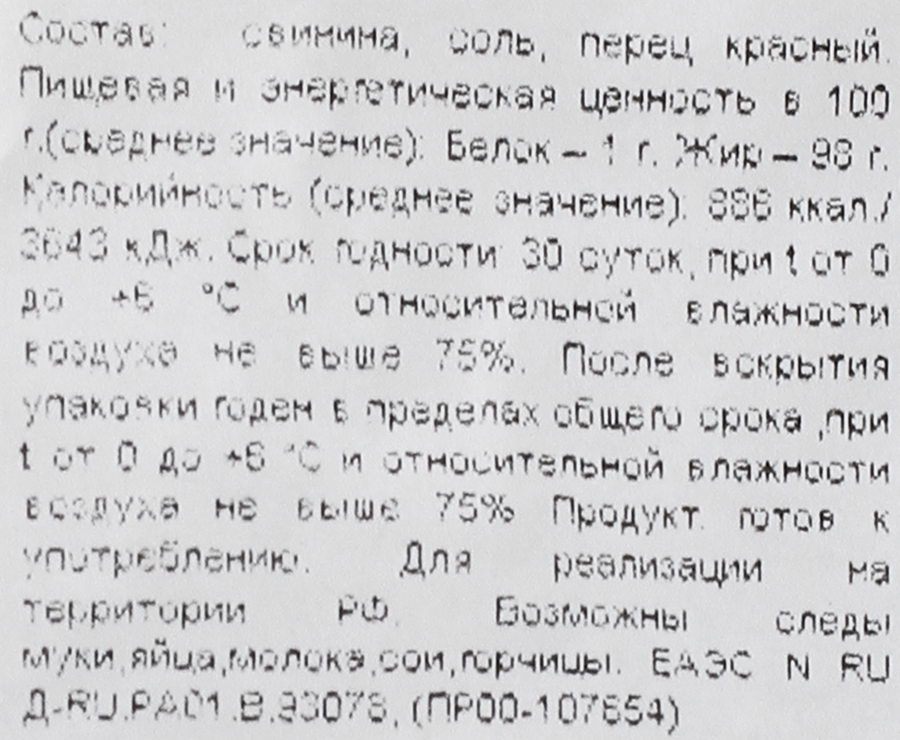 Состав: свинина, соль, перец красный.
Пищевая и энергетическая ценность в 100
г.(среднее значение): Белок – 1 г. Жир – 98 г.
Калорийность (среднее значение): 886 ккал./
3643 кДж. Срок годности: 30 суток, при t от 0
до +6 °С и относительной влажности
воздуха не выше 75%. После вскрытия
упаковки годен в пределах общего срока ,при
t от 0 до +6 °С и относительной влажности
воздуха не выше 75% Продукт готов к
употреблению. Для реализации на
территории РФ. Возможны следы
муки,яйца,молока,сои,горчицы. ЕАЭС N RU
Д-RU.РА01.В.93078, (ПР00-107654)